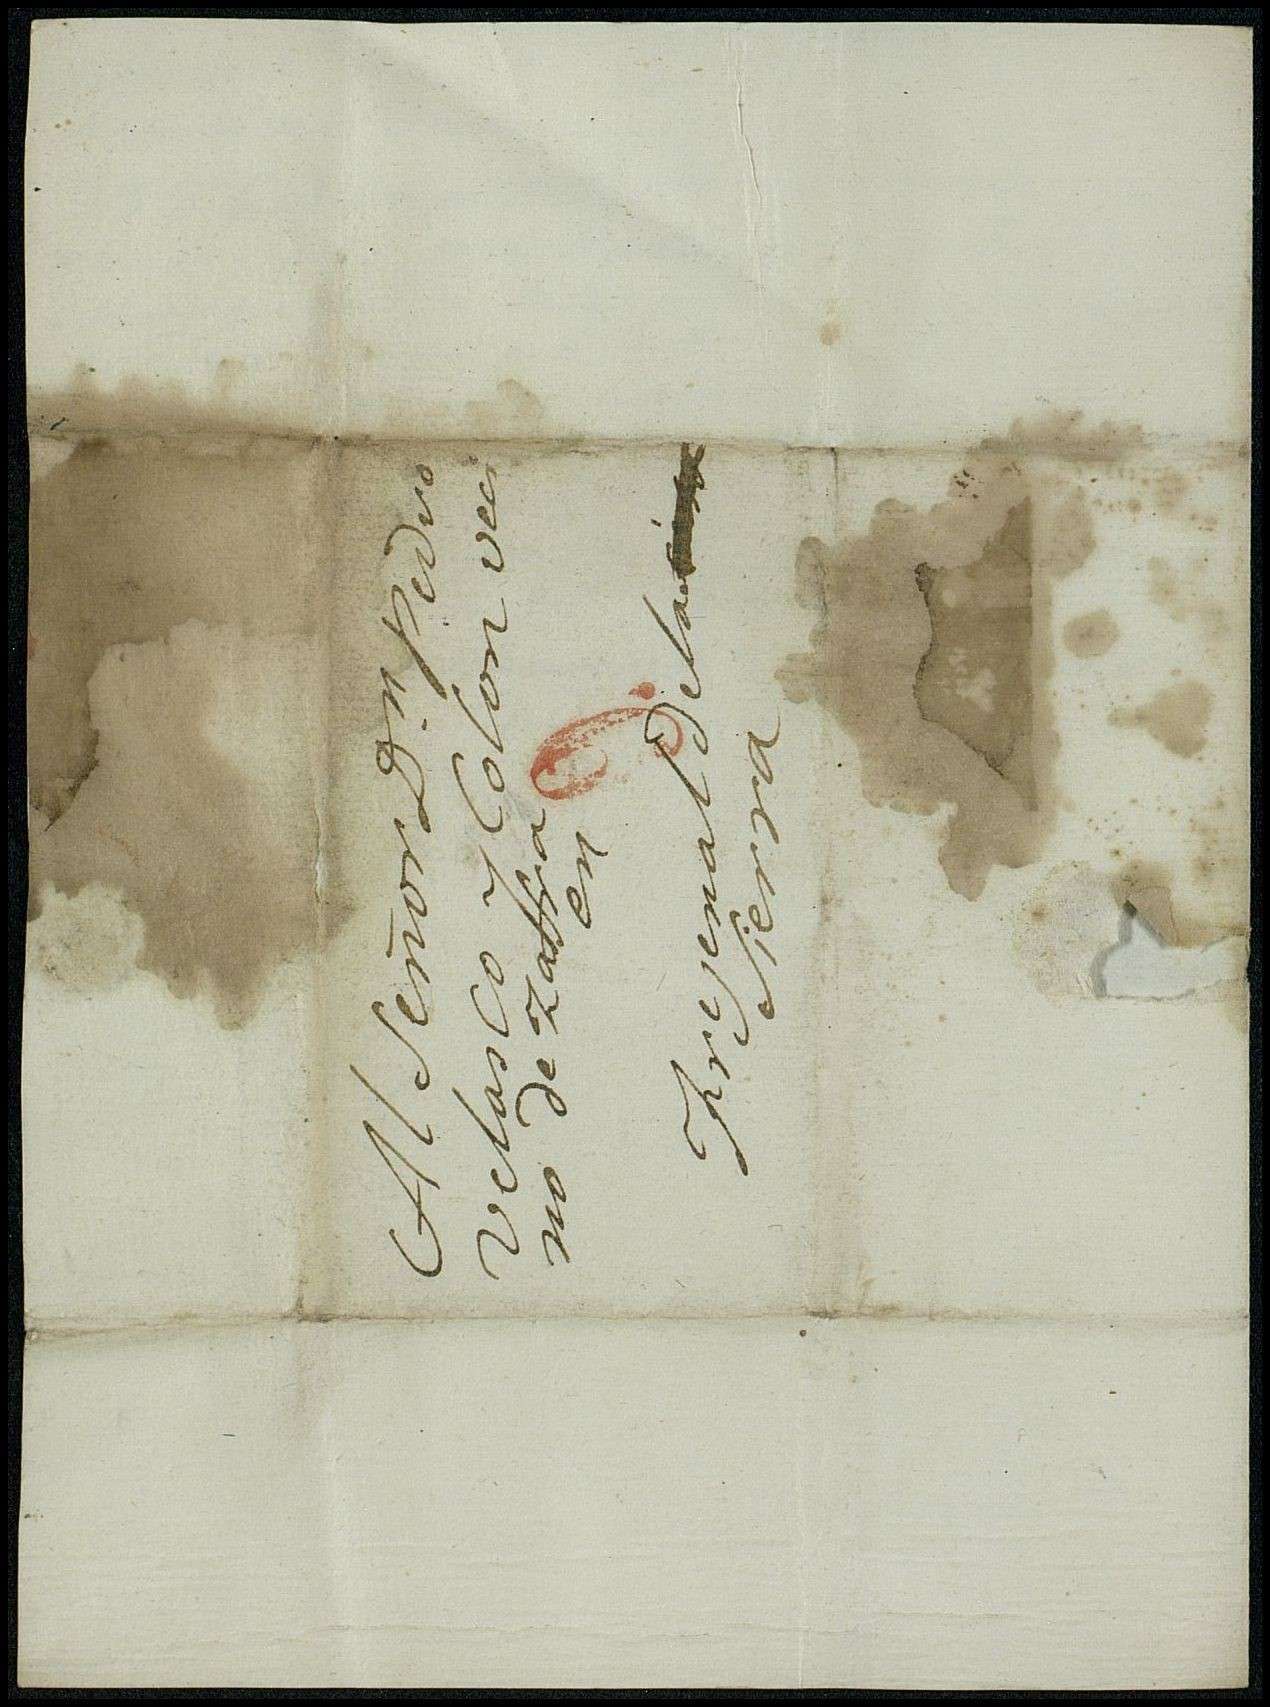 Al Señor Dn. Pedro
Velasco y Colon veci
no de Zaffra
en
Frejenal de la
Sierra